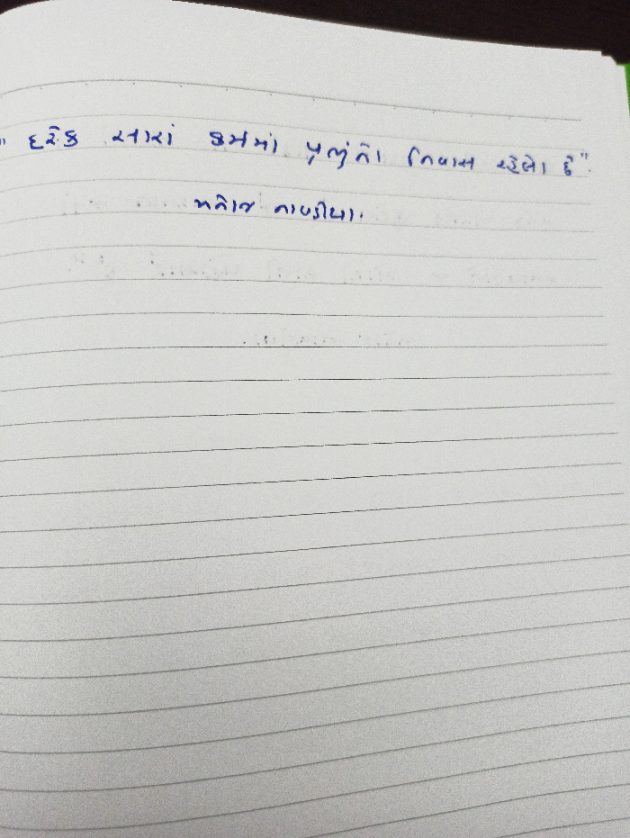 "દરેક સારાં કર્મમાં પ્રભુનો નિવાસ રહેલો છે".
મનોજ નાવડીયા.